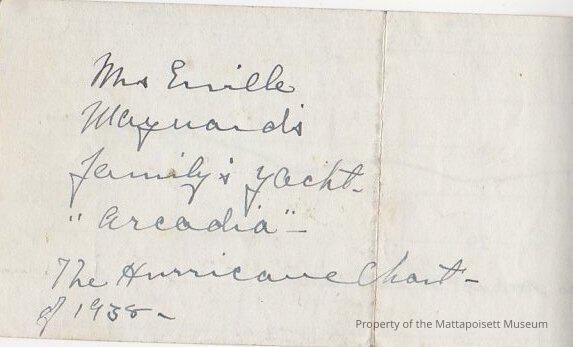 Mrs Enville
Maynard's
family's yacht-
"Arcadia"-
The Hurricane Chart-
of 1938-
Property of the Mattapoisett Museum